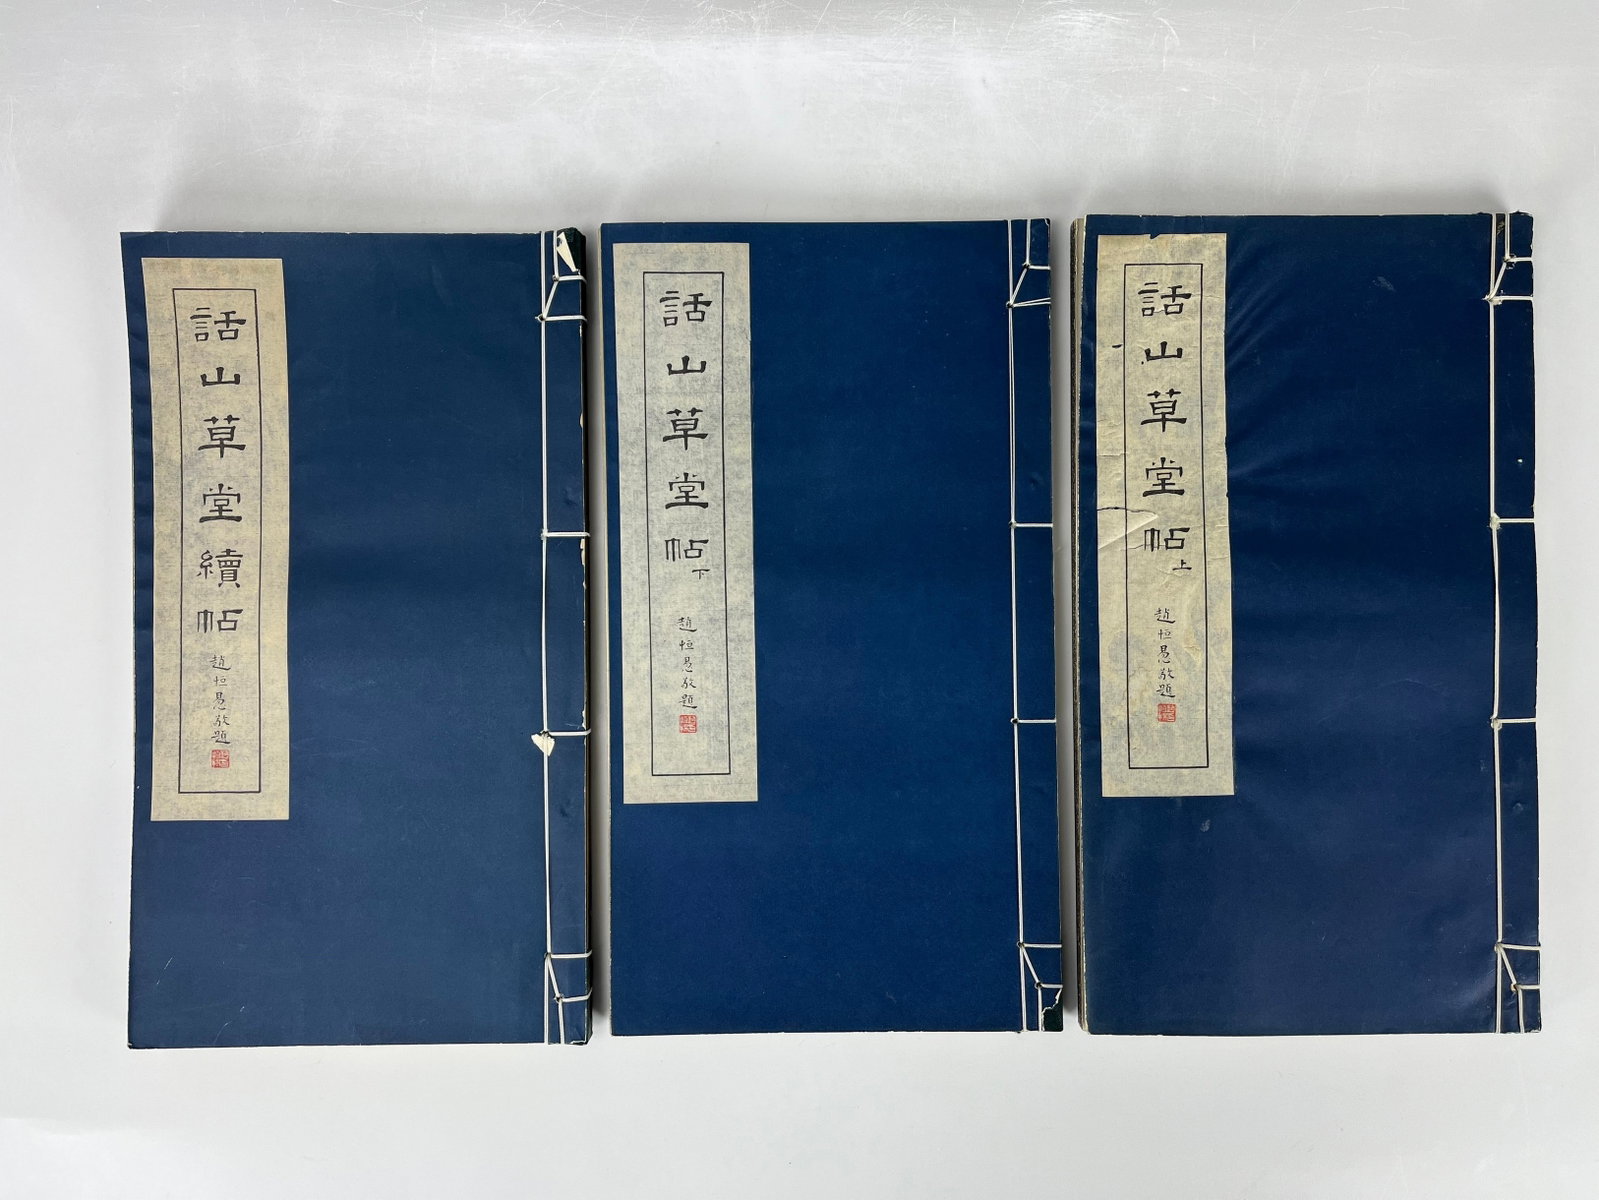 話山草堂帖上
趙恒愚敬題
話山草堂帖下
趙恒愚敬題
話山草堂續帖
趙恒愚敬題